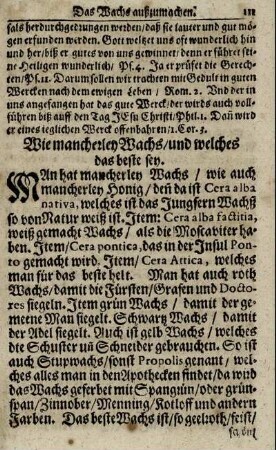 Das Wachs außzumachen. 111
fals herdurchgedrungen werden/daß sie lauter und gut mö-
gen erfunden werden. Gott welzet uns offt wunderlich hin
und her/biß er gutes von uns gewinnet/denn er führet sei-
ne Heiligen wunderlich/Ps. 4. Ja er prüfet die Gerech-
ten/Ps. 11. Darum sollen wir trachten mit Gedult in guten
Wercken nach dem ewigen Leben / Rom. 2. Und der in
uns angefangen hat das gute Werck/der wirds auch voll-
führen biß auff den Tag JEsu Christi/Phil. 1. Dañ wird
er eines jeglichen Werck offenbahren/1. Cor. 3.
Wie mancherley Wachs/und welches
das beste sey.
MAn hat mancherley Wachs / wie auch
mancherley Honig/den da ist Cera alba
nativa, welches ist das Jungfern Wachß
so von Natur weiß ist. Item: Cera alba factitia,
weiß gemacht Wachs / als die Moscaviter ha-
ben. Item/Cera pontica, das in der Insul Pon-
to gemacht wird. Item/Cera Attica, welches
man für das beste helt. Man hat auch roth
Wachs/damit die Fürsten/Grafen und Docto-
res siegeln. Item grün Wachs / damit der ge-
meene Man siegelt. Schwartz Wachs / damit
der Adel siegelt. Auch ist gelb Wachs / welches
die Schuster uñ Schneider gebrauchen. So ist
auch Stupwachs/sonst Propolis genant / wel-
ches alles man in den Apothecken findet/da wird
das Wachs geferbet mit Spangrün/oder grün-
span/Zinnober/Menning/Kotloff und andern
Farben. Das beste Wachs ist/so geelroth/feist/